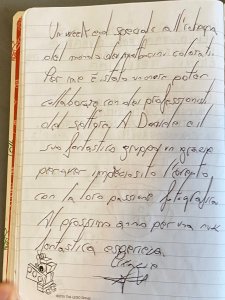 Un weekend speciale all'insegna
del mondo dei mattoncini colorati.
Per me è stato un onore poter
collaborare con dei professionisti
del settore. A Daniele e il
suo fantastico gruppo un grazie
per aver impreziosito l'evento
con la loro passione fotografica.
Al prossimo anno per una nuova
fantastica esperienza.
Grazie